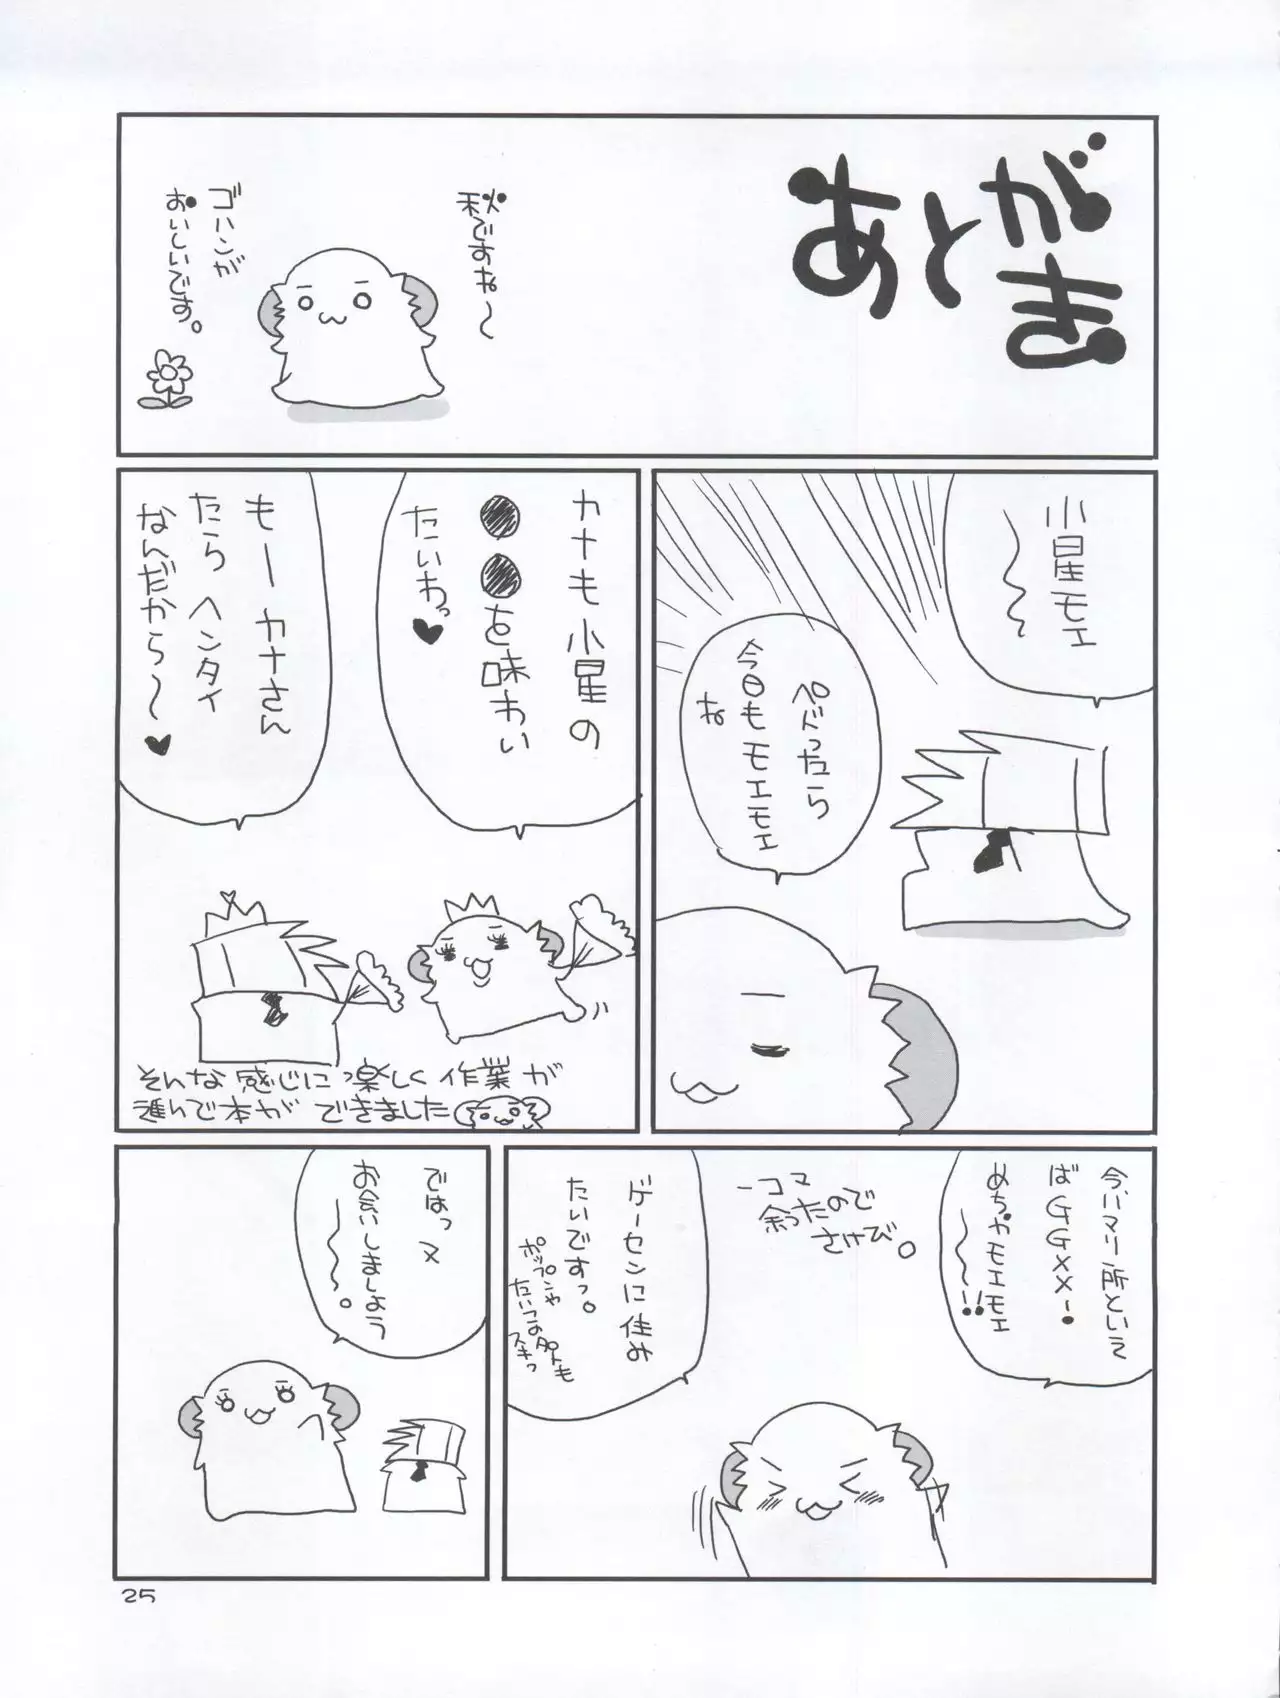 あとがき
秋ですね〜
ゴハンが
おいしいです。
小星モエ
〜〜
ペドったら
今日もモエモエ
ね
カナも小星の
●●を味わい
たいわっ♥
もーカナさん
たら ヘンタイ
なんだから〜♥
そんな感じに楽しく作業が
進んで本ができました
今ハマリ所といえ
ばGGXX！
めちゃモエモエ
〜〜!!
一コマ
余ったので
さけび。
ゲーセンに住み
たいですっ。
ポップンや
たいこのタツも
スキっ
ではっ又
お会いしましょう
〜〜。
25